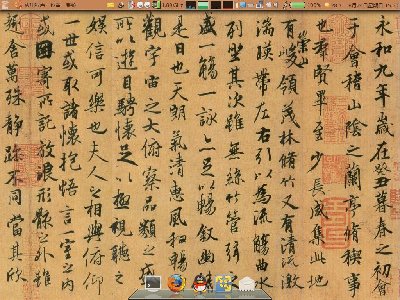 永和九年歲在癸丑暮春之初會
于會稽山陰之蘭亭脩稧事
也羣賢畢至少長咸集此地
有崇山峻領茂林脩竹又有清流激
湍暎帶左右引以為流觴曲水
列坐其次雖無絲竹管弦
盛一觴一詠亦足以暢敘幽情
是日也天朗氣清惠風和暢
觀宇宙之大俯察品類之盛
所以遊目騁懷足以極視聽之
娛信可樂也夫人之相與俯仰
一世或取諸懷抱悟言一室之內
或因寄所託放浪形骸之外雖
趣舍萬殊靜躁不同當其欣
100%